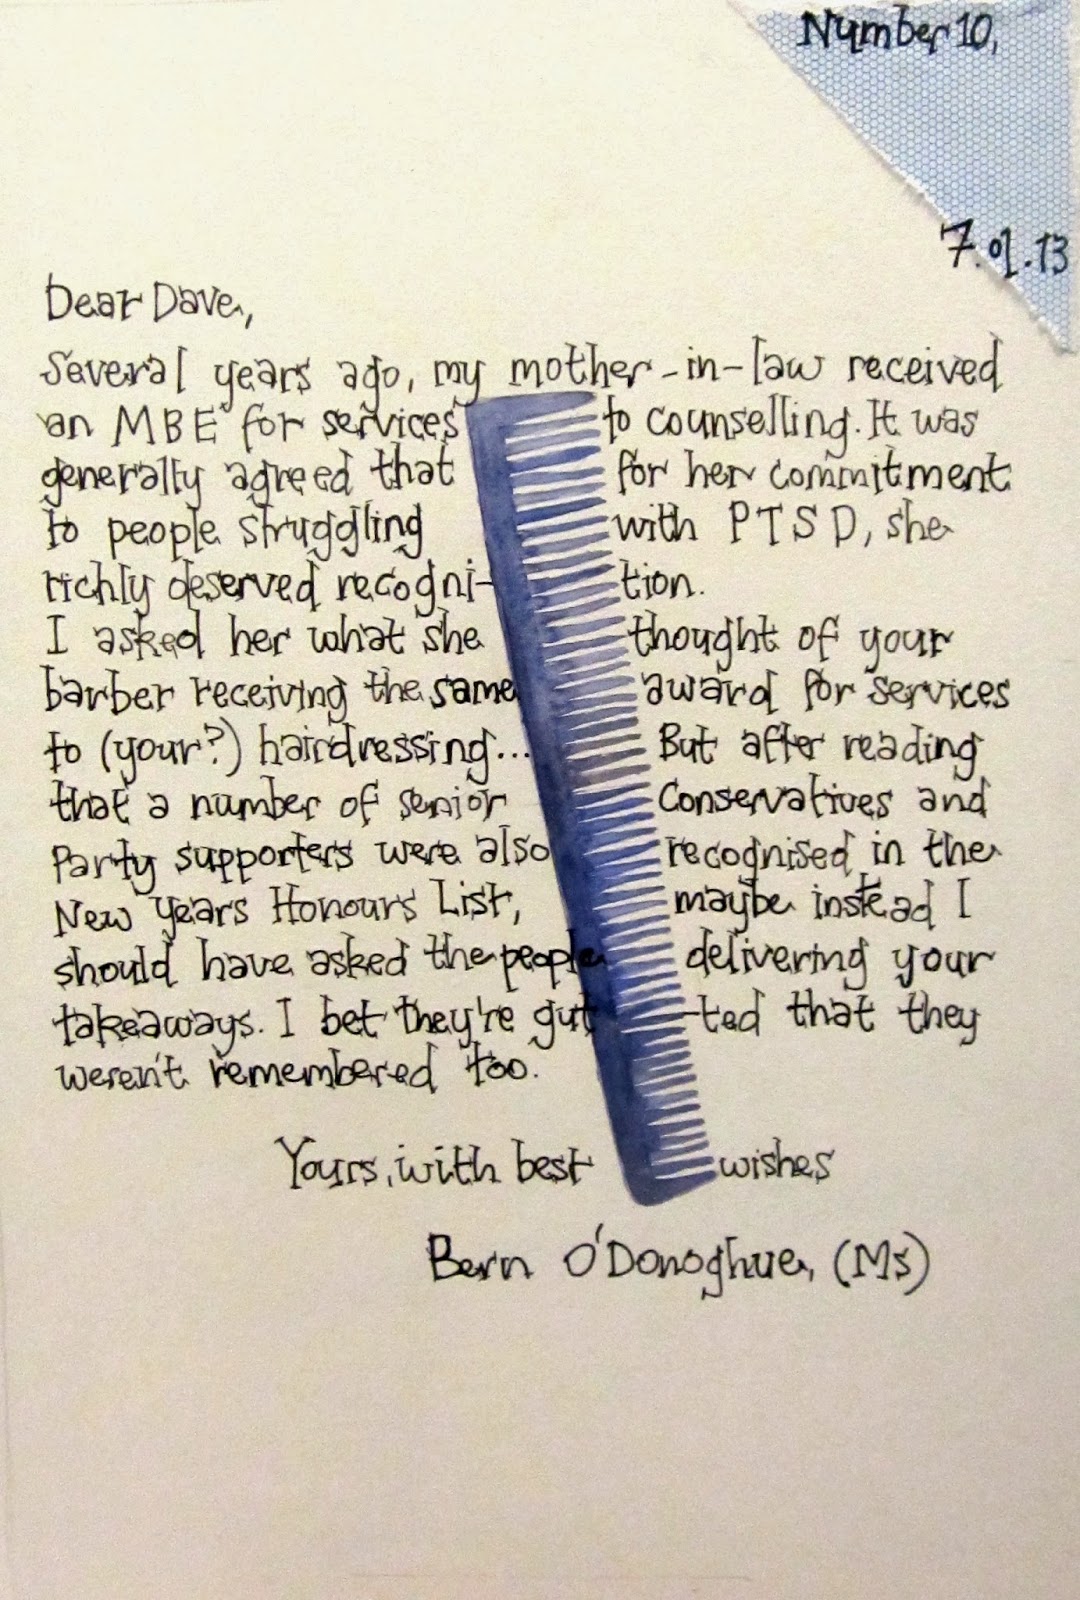 Number 10,
7.01.13
Dear Dave,
Several years ago, my mother-in-law received
an MBE for services to counselling. It was
generally agreed that for her commitment
to people struggling with PTSD, she
richly deserved recogni-tion.
I asked her what she thought of your
barber receiving the same award for services
to (your?) hairdressing... But after reading
that a number of senior Conservatives and
Party supporters were also recognised in the
New Years Honours List, maybe instead I
should have asked the people delivering your
takeaways. I bet they're gut-ted that they
weren't remembered too.
Yours, with best wishes
Bern O'Donoghue, (Ms)